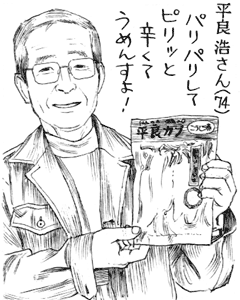 平良 浩さん(74)
パリパリして
ピリッと
辛くて
うめんすよ!
平良カブ
こうじ漬